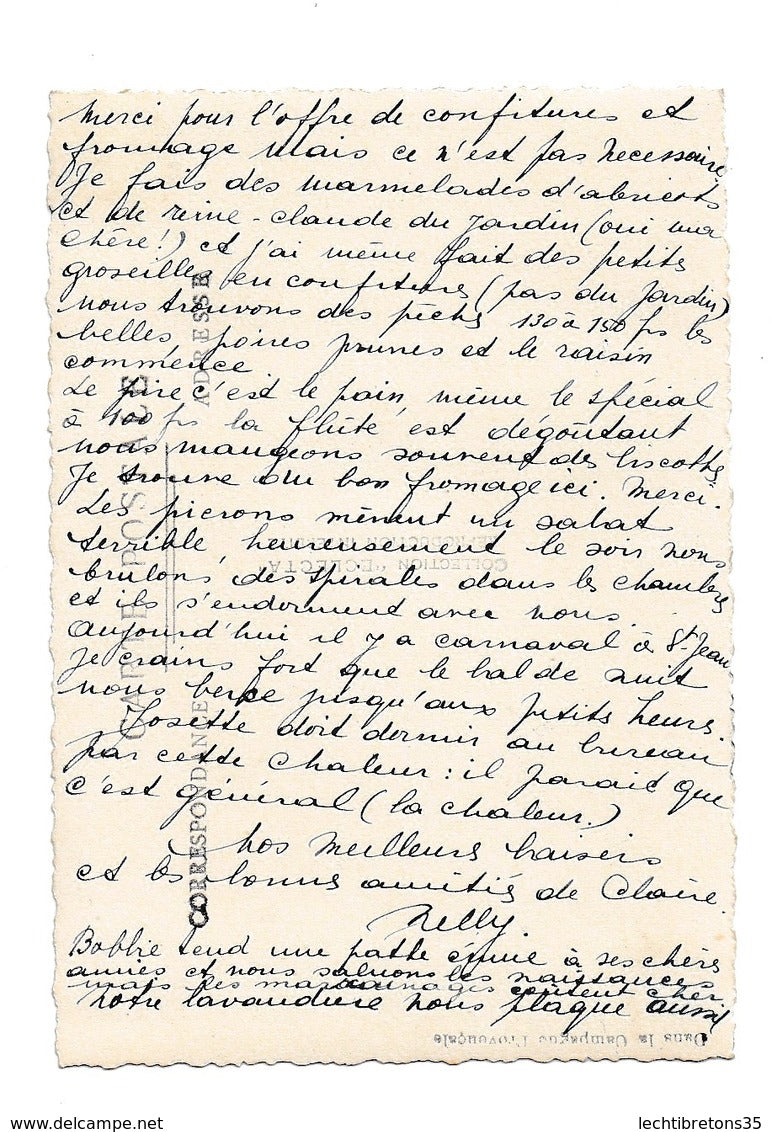 Merci pour l'offre de confitures et
fromage mais ce n'est pas necessaire.
Je fais des marmelades d'abricots
et de reine-claude du jardin (oui ma
chère!) et j'ai même fait des petits
groseilles en confitures (pas du jardin)
nous trouvons des pêches 130 à 150 frs les
belles, poires prunes et le raisin
commence
Le pire c'est le pain, même le spécial
à 100 frs la flûte, est dégoûtant
nous mangeons souvent des biscottes.
Je trouve du bon fromage ici. Merci.
Les picrons mènent un sabat
terrible heureusement le soir nous
brulons des spirales dans les chambres
et ils s'endorment avec nous.
Aujourd'hui il y a carnaval à St-Jean
Je crains fort que le bal de nuit
nous berce jusqu'aux petits heures.
Josette doit dormir au bureau
par cette chaleur: il parait que
c'est général (la chaleur.)
Nos meilleurs baisers
et les bonnes amitiés de Claire.
Nelly.
Bobbie tend une patte émue à ses chères
amies et nous saluons les naissances
mais les coutent cher
notre lavandière nous plaque aussi
CARTE POSTALE
CORRESPONDANCE
ADRESSE
COLLECTION "ECLECTA"
REPRODUCTION
Dans la Campagne Provençale
delcampe.net
lechtibretons35